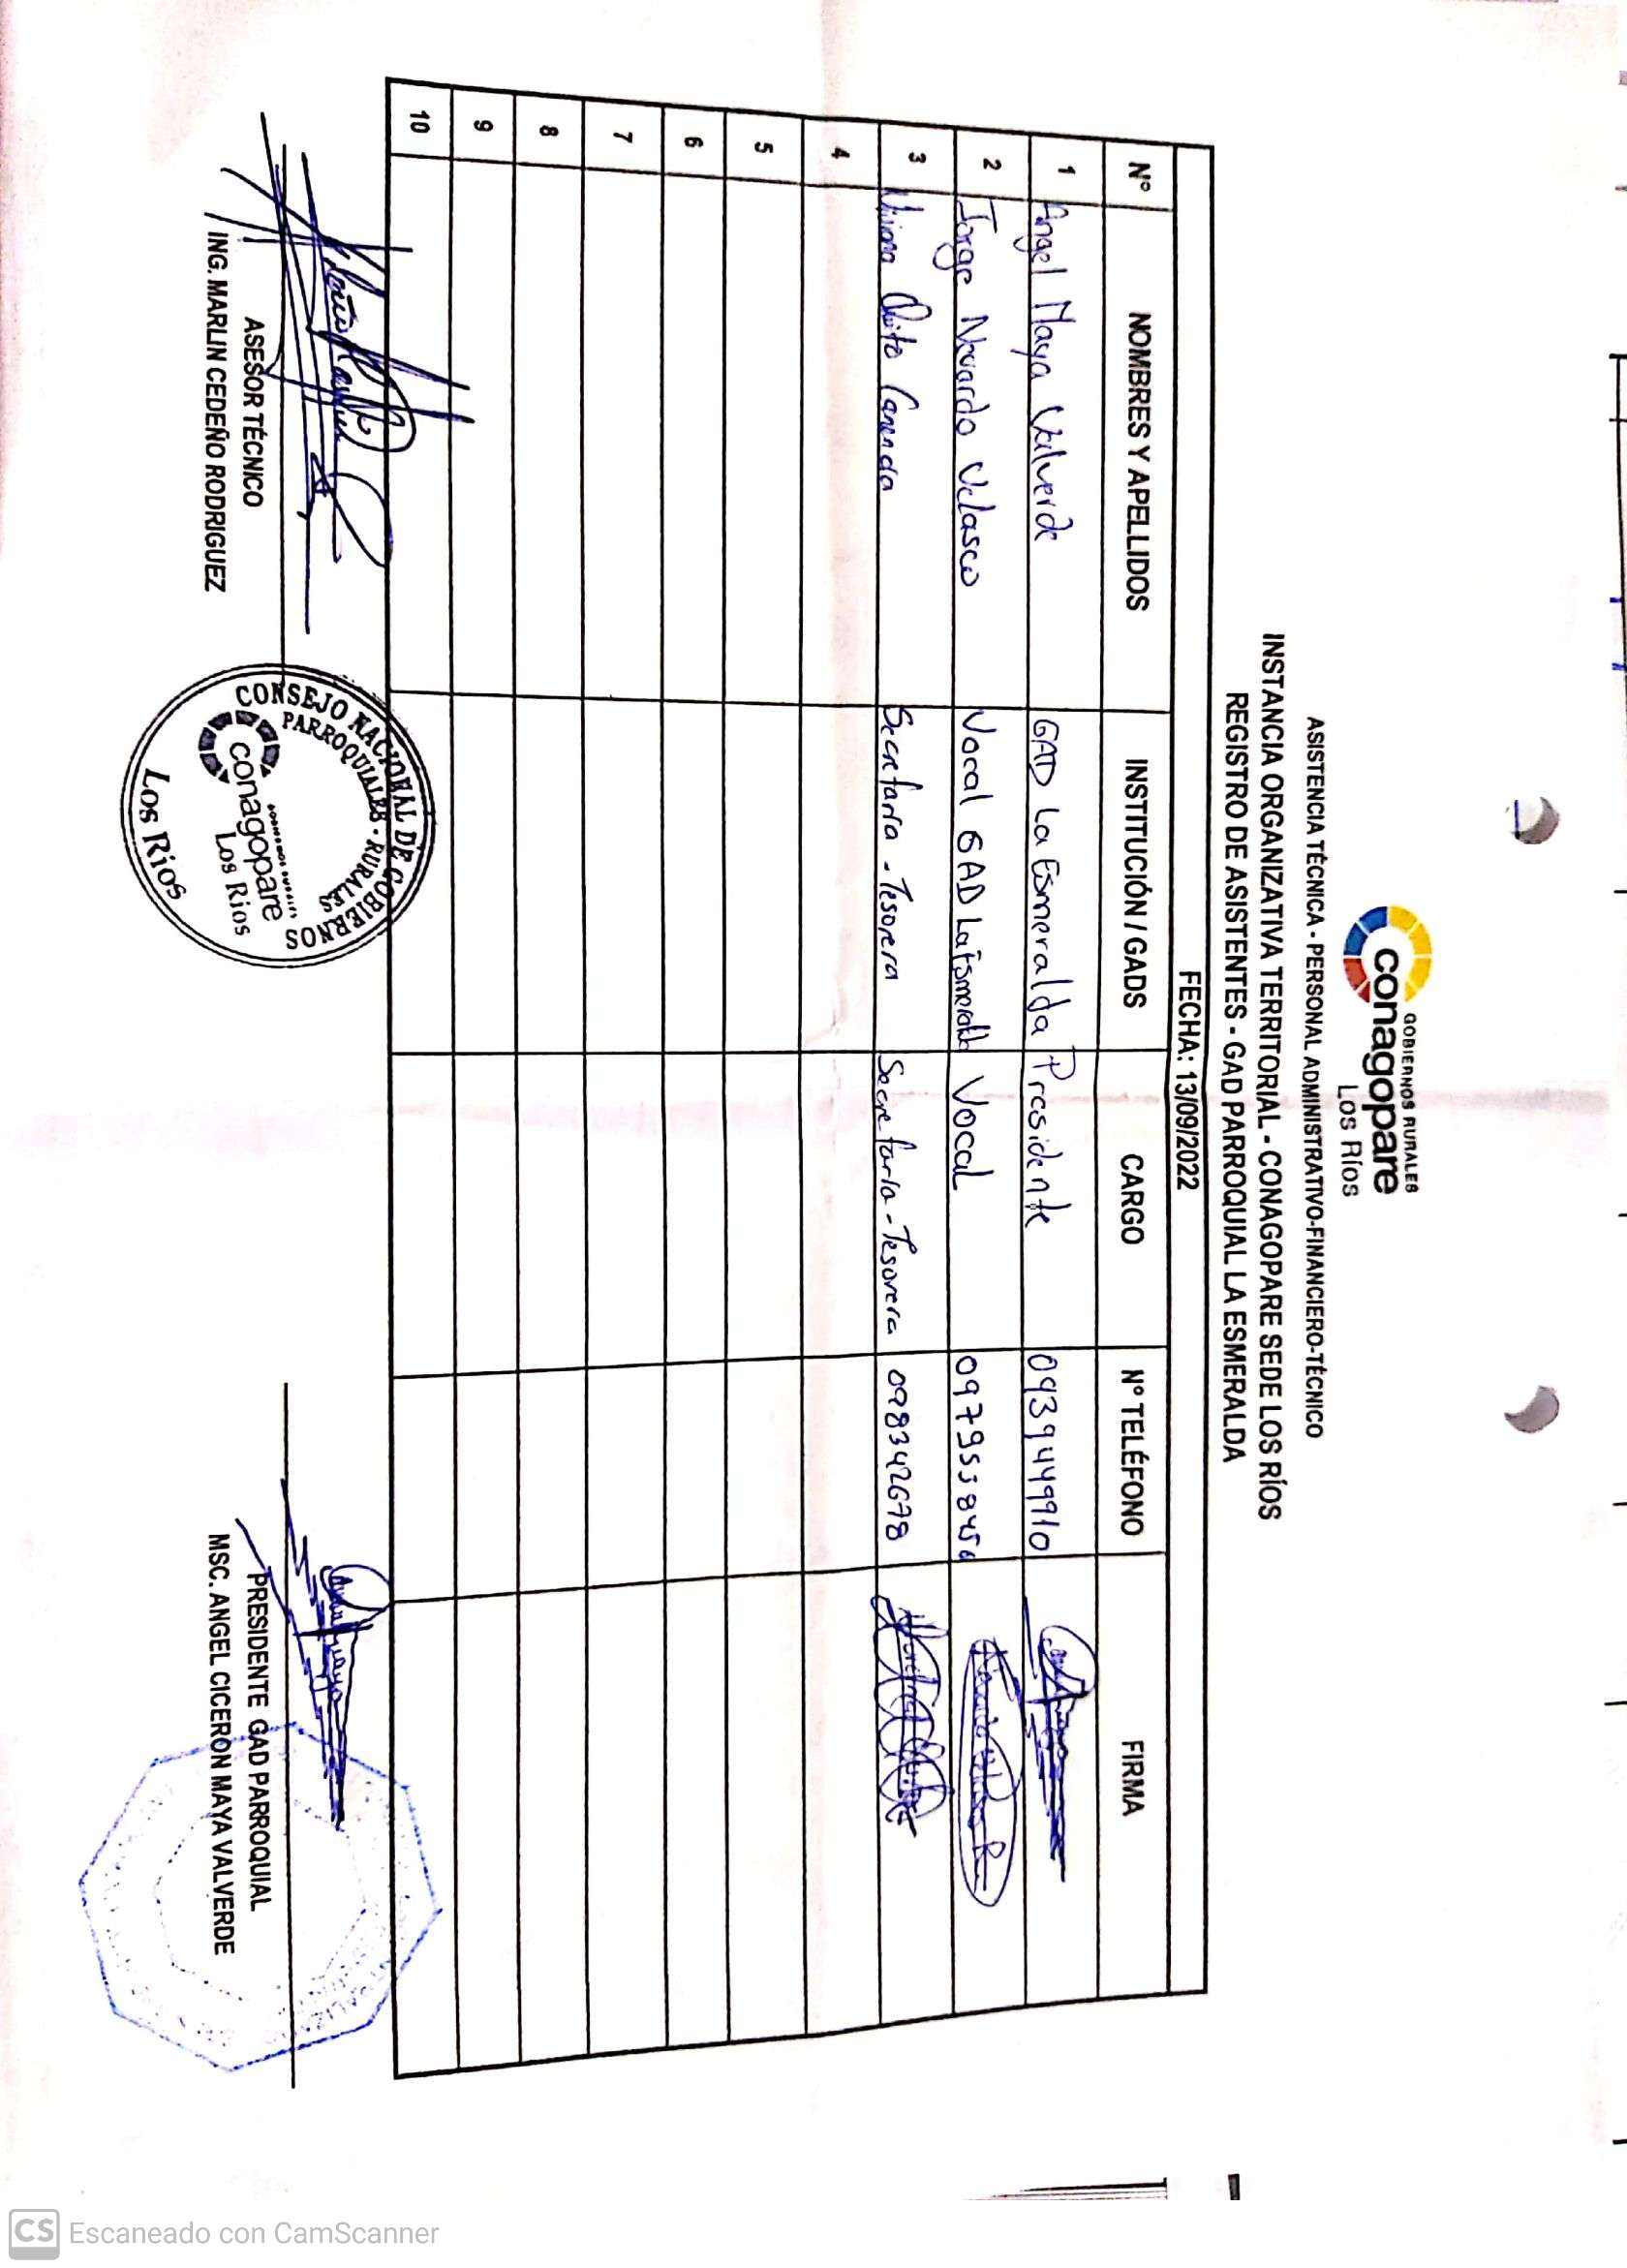 GOBIERNOS RURALES
conagopare
Los Ríos
ASISTENCIA TÉCNICA - PERSONAL ADMINISTRATIVO-FINANCIERO-TÉCNICO
INSTANCIA ORGANIZATIVA TERRITORIAL - CONAGOPARE SEDE LOS RÍOS
REGISTRO DE ASISTENTES - GAD PARROQUIAL LA ESMERALDA
FECHA: 13/09/2022
N° NOMBRES Y APELLIDOS INSTITUCIÓN / GADS CARGO N° TELÉFONO FIRMA
1 Angel Maya Valverde GAD La Esmeralda Presidente 0939449910
2 Jorge Navardo Velasco Vocal GAD La Esmeralda Vocal
3 Secretaria - Tesorera Secretaria - Tesorera 098342678
4
5
6
7
8
9
10
ASESOR TÉCNICO
ING. MARLIN CEDEÑO RODRIGUEZ
CONSEJO NACIONAL DE GOBIERNOS
PARROQUIALES - RURALES
conagopare
Los Ríos
Los Ríos
PRESIDENTE GAD PARROQUIAL
MSC. ANGEL CICERÓN MAYA VALVERDE
CS Escaneado con CamScanner